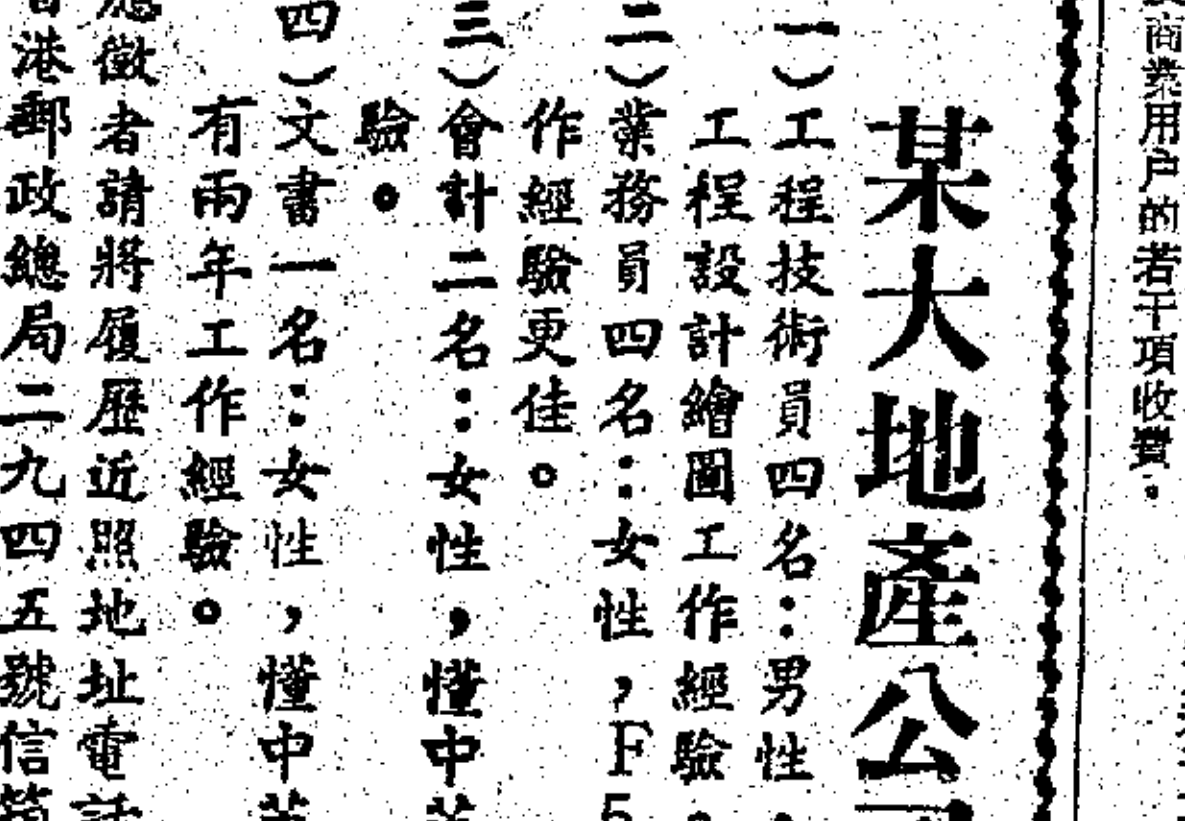 商業用户的若干項收費。
某大地產公司
一）工程技術員四名：男性
工程設計繪圖工作經驗
二）業務員四名：女性，F5
作經驗更佳。
三）會計二名：女性，懂中英
驗。
四）文書一名：女性，懂中英
有兩年工作經驗。
應徵者請將履歷近照地址電話
香港郵政總局二九四五號信箱